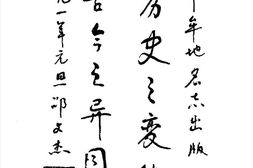 牟地名志出版
历史之变
古今之异同
九一年元旦 文杰